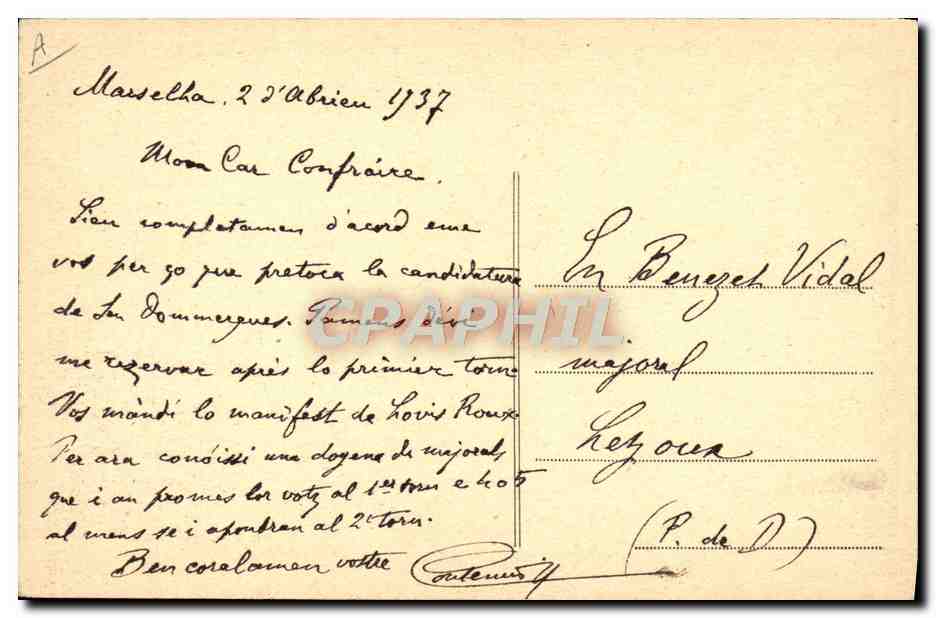 A
Marselha. 2 d'Abrieu 1937
Mon Car Confraire.
Sieu completamen d'acord eme
vos per ço que pretoca la candidatura
de Dommergues. Pamens dévi
me rezervar après lo primièr torn.
Vos màndi lo manifest de Lovis Roux.
Per ara conóissi una dogena de majorals
que i an promes lor votz al 1er torn e 4 o 5
al mens se i apondran al 2e torn.
Ben coralamen vostre
En Benezet Vidal
majoral
Lezoux
(P. de D)
CPAPHIL